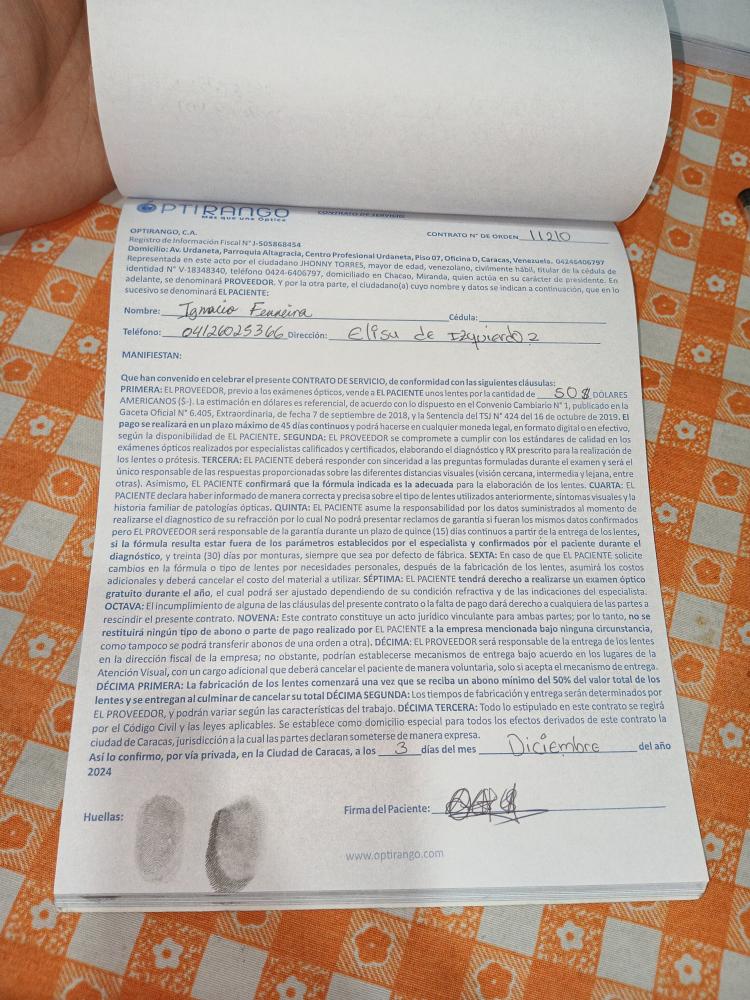 OPTIRANGO
Más que una Óptica
CONTRATO DE SERVICIO
OPTIRANGO, C.A.
CONTRATO N° DE ORDEN 11210
Registro de Información Fiscal N° J-505868454
Domicilio: Av. Urdaneta, Parroquia Altagracia, Centro Profesional Urdaneta, Piso 07, Oficina D, Caracas, Venezuela. 04246406797
Representada en este acto por el ciudadano JHONNY TORRES, mayor de edad, venezolano, civilmente hábil, titular de la cédula de
identidad N° V-18348340, teléfono 0424-6406797, domiciliado en Chacao, Miranda, quien actúa en su carácter de presidente. En
adelante, se denominará PROVEEDOR. Y por la otra parte, el ciudadano(a) cuyo nombre y datos se indican a continuación, que en lo
sucesivo se denominará EL PACIENTE:
Nombre: Ignacio Ferreira Cédula:
Teléfono: 04126025366 Dirección: Elisu de Izquierdo 2
MANIFIESTAN:
Que han convenido en celebrar el presente CONTRATO DE SERVICIO, de conformidad con las siguientes cláusulas:
PRIMERA: EL PROVEEDOR, previo a los exámenes ópticos, vende a EL PACIENTE unos lentes por la cantidad de 50$ DÓLARES
AMERICANOS ($-). La estimación en dólares es referencial, de acuerdo con lo dispuesto en el Convenio Cambiario N° 1, publicado en la
Gaceta Oficial N° 6.405, Extraordinaria, de fecha 7 de septiembre de 2018, y la Sentencia del TSJ N° 424 del 16 de octubre de 2019. El
pago se realizará en un plazo máximo de 45 días continuos y podrá hacerse en cualquier moneda legal, en formato digital o en efectivo,
según la disponibilidad de EL PACIENTE. SEGUNDA: EL PROVEEDOR se compromete a cumplir con los estándares de calidad en los
exámenes ópticos realizados por especialistas calificados y certificados, elaborando el diagnóstico y RX prescrito para la realización de
los lentes o prótesis. TERCERA: EL PACIENTE deberá responder con sinceridad a las preguntas formuladas durante el examen y será el
único responsable de las respuestas proporcionadas sobre las diferentes distancias visuales (visión cercana, intermedia y lejana, entre
otras). Asimismo, EL PACIENTE confirmará que la fórmula indicada es la adecuada para la elaboración de los lentes. CUARTA: EL
PACIENTE declara haber informado de manera correcta y precisa sobre el tipo de lentes utilizados anteriormente, síntomas visuales y la
historia familiar de patologías ópticas. QUINTA: EL PACIENTE asume la responsabilidad por los datos suministrados al momento de
realizarse el diagnostico de su refracción por lo cual No podrá presentar reclamos de garantía si fueran los mismos datos confirmados
pero EL PROVEEDOR será responsable de la garantía durante un plazo de quince (15) días continuos a partir de la entrega de los lentes,
si la fórmula resulta estar fuera de los parámetros establecidos por el especialista y confirmados por el paciente durante el
diagnóstico, y treinta (30) días por monturas, siempre que sea por defecto de fábrica. SEXTA: En caso de que EL PACIENTE solicite
cambios en la fórmula o tipo de lentes por necesidades personales, después de la fabricación de los lentes, asumirá los costos
adicionales y deberá cancelar el costo del material a utilizar. SÉPTIMA: EL PACIENTE tendrá derecho a realizarse un examen óptico
gratuito durante el año, el cual podrá ser ajustado dependiendo de su condición refractiva y de las indicaciones del especialista.
OCTAVA: El incumplimiento de alguna de las cláusulas del presente contrato o la falta de pago dará derecho a cualquiera de las partes a
rescindir el presente contrato. NOVENA: Este contrato constituye un acto jurídico vinculante para ambas partes; por lo tanto, no se
restituirá ningún tipo de abono o parte de pago realizado por EL PACIENTE a la empresa mencionada bajo ninguna circunstancia,
como tampoco se podrá transferir abonos de una orden a otra). DÉCIMA: EL PROVEEDOR será responsable de la entrega de los lentes
en la dirección fiscal de la empresa; no obstante, podrían establecerse mecanismos de entrega bajo acuerdo en los lugares de la
Atención Visual, con un cargo adicional que deberá cancelar el paciente de manera voluntaria, solo si acepta el mecanismo de entrega.
DÉCIMA PRIMERA: La fabricación de los lentes comenzará una vez que se reciba un abono mínimo del 50% del valor total de los
lentes y se entregan al culminar de cancelar su total DÉCIMA SEGUNDA: Los tiempos de fabricación y entrega serán determinados por
EL PROVEEDOR, y podrán variar según las características del trabajo. DÉCIMA TERCERA: Todo lo estipulado en este contrato se regirá
por el Código Civil y las leyes aplicables. Se establece como domicilio especial para todos los efectos derivados de este contrato la
ciudad de Caracas, jurisdicción a la cual las partes declaran someterse de manera expresa.
Así lo confirmo, por vía privada, en la Ciudad de Caracas, a los 3 días del mes Diciembre del año
2024
Huellas:
Firma del Paciente:
www.optirango.com